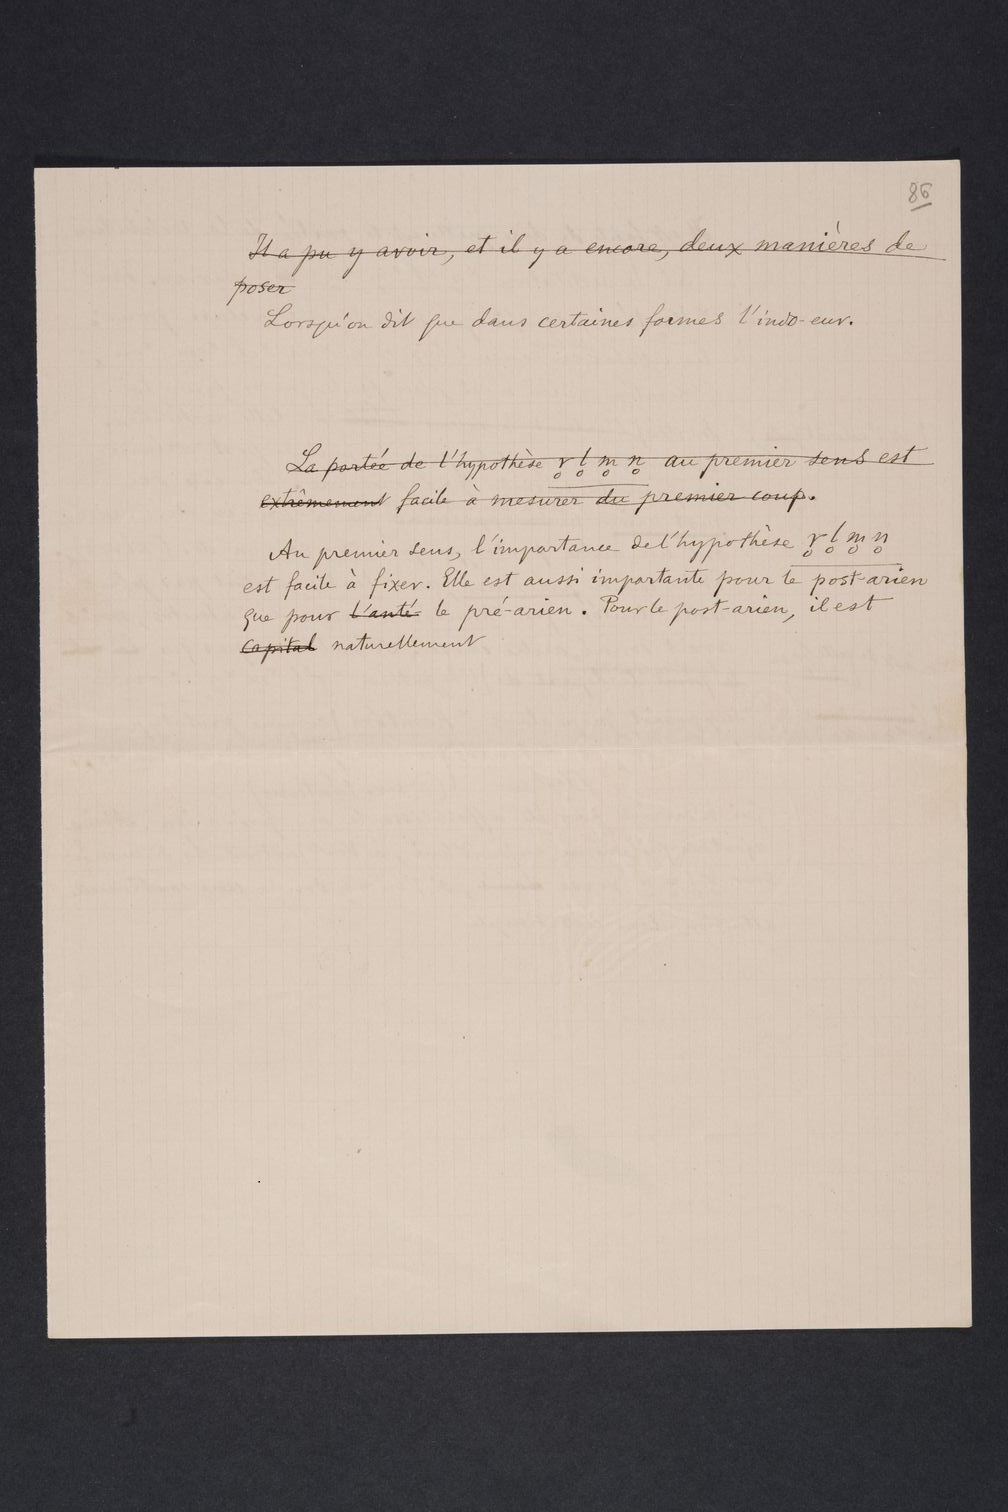 86
Il a pu y avoir, et il y a encore, deux manières de
poser
Lorsqu'on dit que dans certaines formes l'indo-eur.
La portée de l'hypothèse r̥ l̥ m̥ n̥ au premier sens est
extrêmement facile à mesurer du premier coup.
Au premier sens, l'importance de l'hypothèse r̥ l̥ m̥ n̥
est facile à fixer. Elle est aussi importante pour le post-arien
que pour l'anté- le pré-arien. Pour le post-arien, il est
capital naturellement